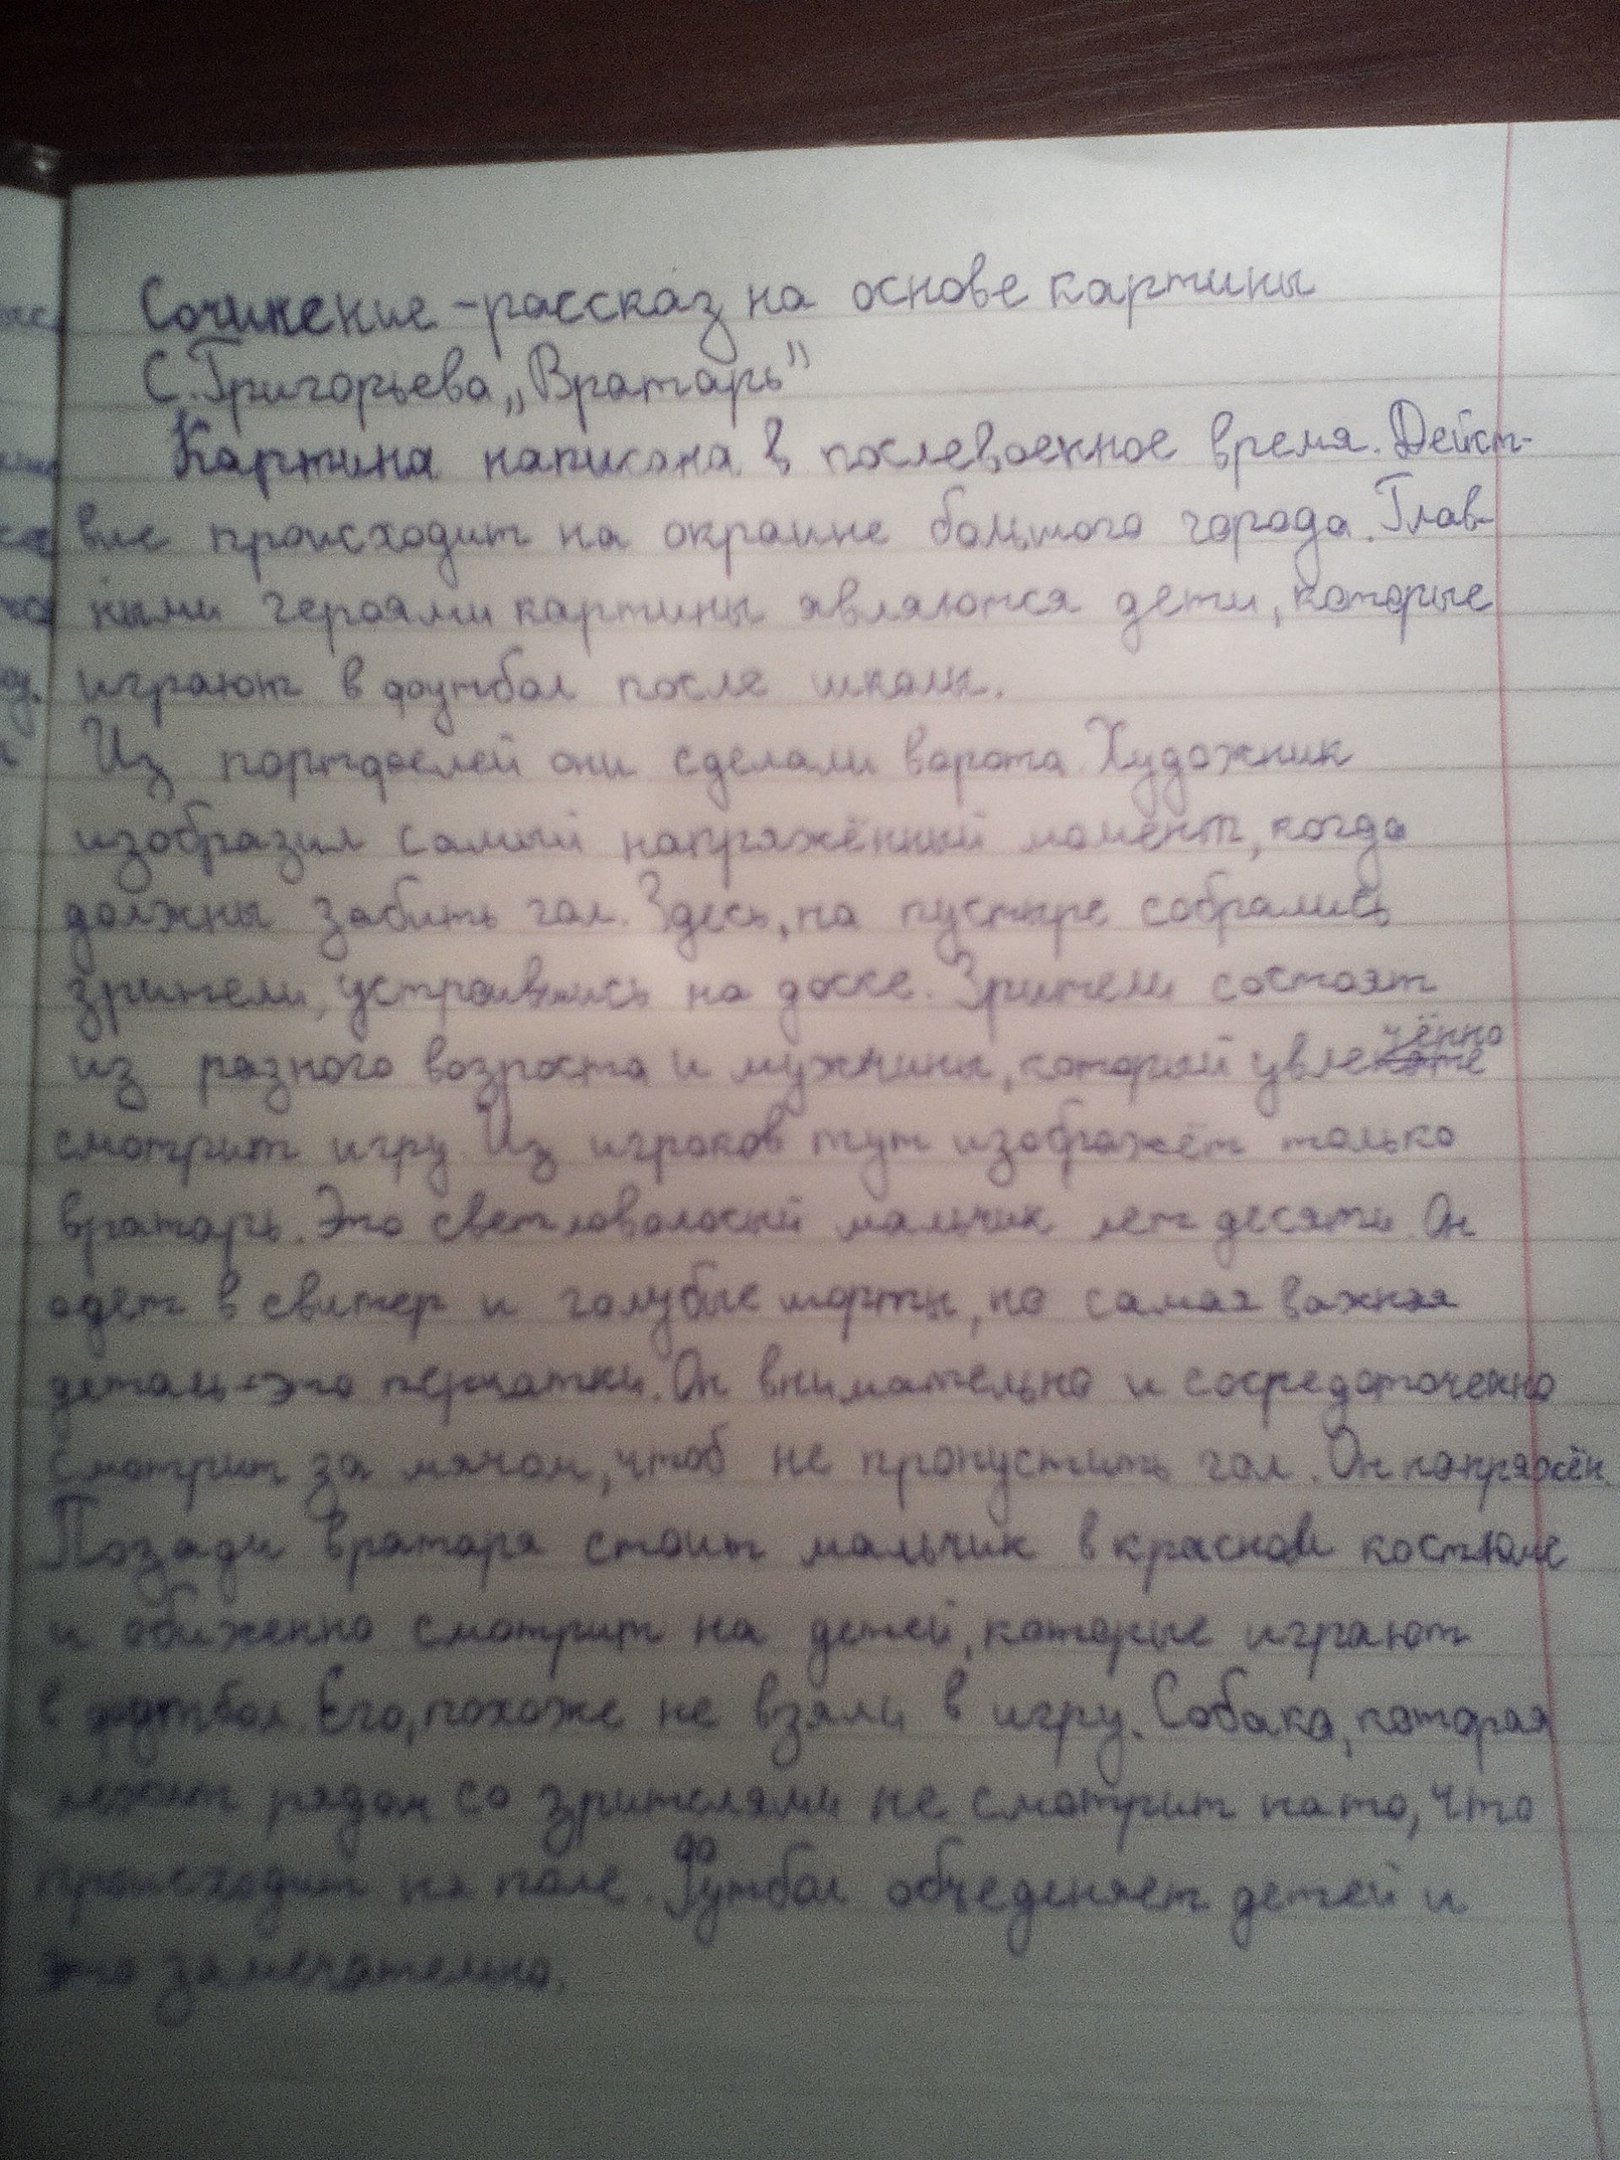 Сочинение-рассказ на основе картины
С.Григорьева „Вратарь”
Картина написана в послевоенное время. Дейст-
вие происходит на окраине большого города. Глав-
ными героями картины являются дети, которые
играют в футбол после школы.
Из портфелей они сделали ворота. Художник
изобразил самый напряжённый момент, когда
должны забить гол. Здесь, на пустыре собрались
зрители, устроившись на доске. Зрители состоят
из разного возроста и мужчины, который увлечённо
смотрит игру. Из игроков тут изображён только
вратарь. Это светловолосый мальчик лет десяти. Он
одет в свитер и голубые шорты, но самая важная
деталь-это перчатки. Он внимательно и сосредоточенно
смотрит за мячом, чтоб не пропустить гол. Он напряжён.
Позади вратаря стоит мальчик в красном костюме
и обиженно смотрит на детей, которые играют
в футбол. Его, похоже не взяли в игру. Собака, которая
лежит рядом со зрителями не смотрит на то, что
происходит на поле. Футбол объеденяет детей и
это замечательно.